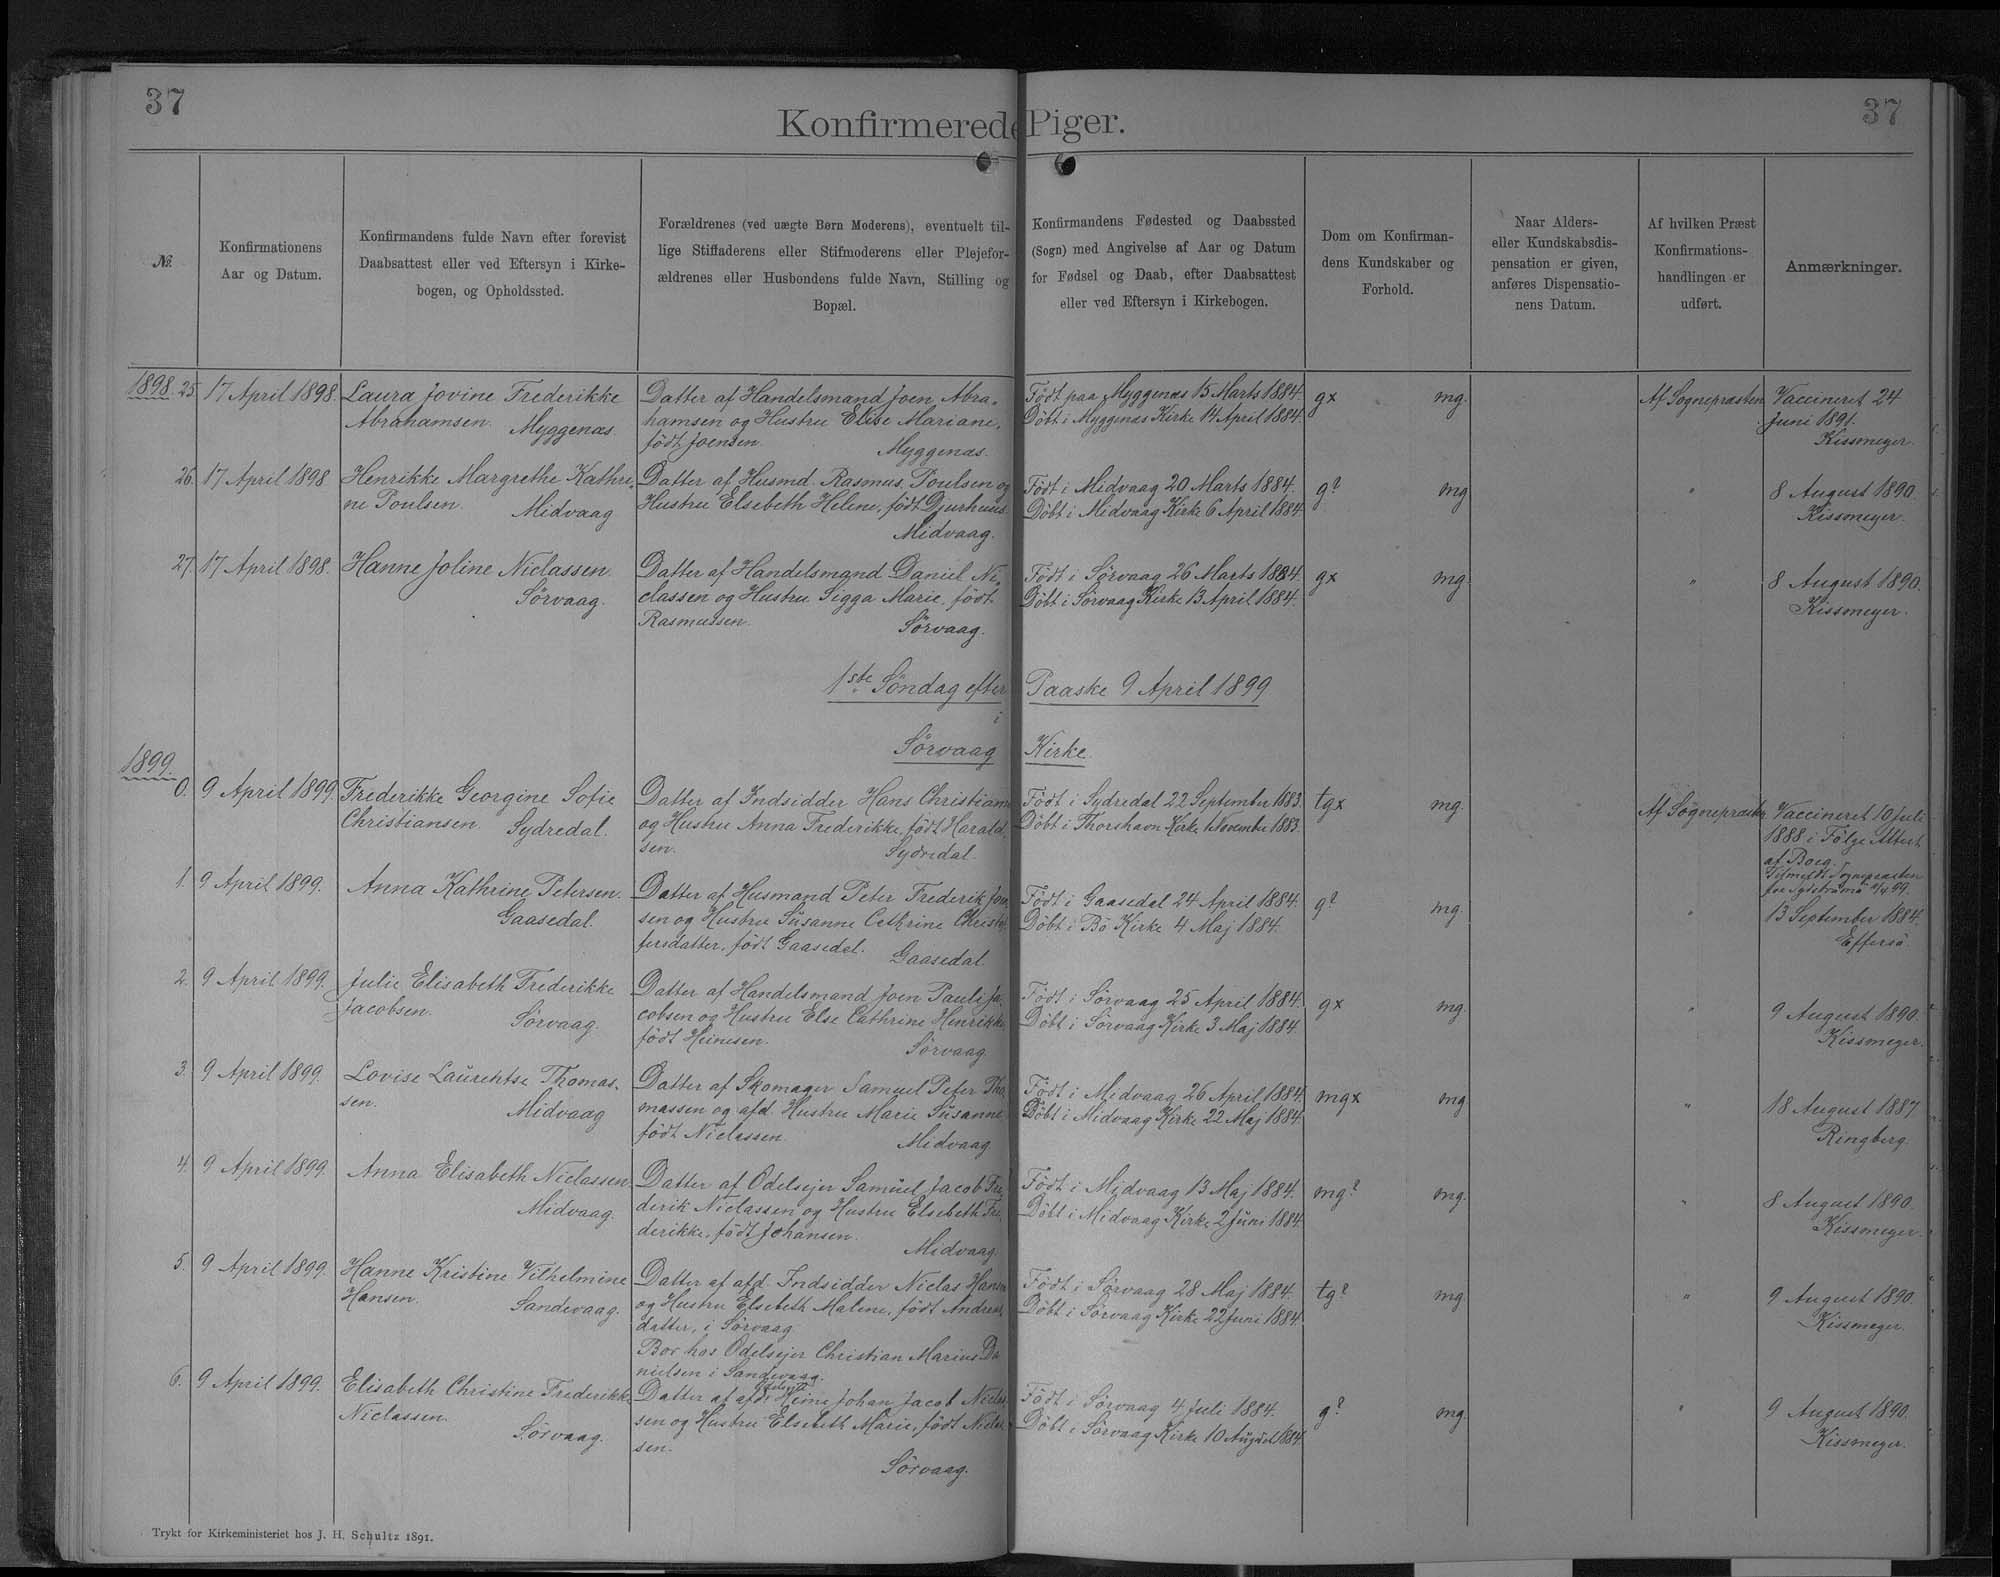 37
37
Konfirmerede Piger.
№.
Konfirmationens
Aar og Datum.
Konfirmandens fulde Navn efter forevist
Daabsattest eller ved Eftersyn i Kirke-
bogen, og Opholdssted.
Forældrenes (ved uægte Børn Moderens), eventuelt til-
lige Stiffaderens eller Stifmoderens eller Plejefor-
ældrenes eller Husbondens fulde Navn, Stilling og
Bopæl.
Konfirmandens Fødested og Daabssted
(Sogn) med Angivelse af Aar og Datum
for Fødsel og Daab, efter Daabsattest
eller ved Eftersyn i Kirkebogen.
Dom om Konfirman-
dens Kundskaber og
Forhold.
Naar Alders-
eller Kundskabsdis-
pensation er given,
anføres Dispensatio-
nens Datum.
Af hvilken Præst
Konfirmations-
handlingen er
udført.
Anmærkninger.
1898. 25. 17 April 1898.
Laura Jovine Frederikke
Abrahamsen. Myggenæs.
Datter af Handelsmand Joen Abra-
hamsen og Hustru Elise Mariane,
født Joensen.
Myggenæs.
Født paa Myggenæs 15 Marts 1884.
Døbt i Myggenæs Kirke 14 April 1884.
gx mg.
Af Sognepræsten
Vaccineret 24
Juni 1891.
Kissmeyer.
26. 17 April 1898
Henrikke Margrethe Kathri-
ne Poulsen. Midvaag
Datter af Husmd. Rasmus Poulsen og
Hustru Elsebeth Helene, født Djurhuus
Midvaag.
Født i Midvaag 20 Marts 1884.
Døbt i Midvaag Kirke 6 April 1884.
g? mg
"
8 August 1890.
Kissmeyer.
27. 17 April 1898.
Hanne Joline Niclassen.
Sørvaag.
Datter af Handelsmand Daniel Ni-
classen og Hustru Sigga Marie, født
Rasmussen.
Sørvaag.
Født i Sørvaag 26 Marts 1884.
Døbt i Sørvaag Kirke 13 April 1884.
gx mg.
"
8 August 1890.
Kissmeyer.
1ste Søndag efter Paaske 9 April 1899
i
Sørvaag Kirke.
1899.
0. 9 April 1899.
Frederikke Georgine Sofie
Christiansen. Sydredal.
Datter af Indsidder Hans Christian
og Hustru Anna Frederikke, født Harald-
sen.
Sydredal.
Født i Sydredal 22 September 1883.
Døbt i Thorshavn Kirke 1 November 1883.
tgx mg.
Af Sognepræsten
Vaccineret 10 Juli
1888 i Følge Attest
af Boeg.
Sognepræsten
for Sydstrømø
1. 9 April 1899.
Anna Kathrine Petersen.
Gaasedal.
Datter af Husmand Peter Frederik Joen-
sen og Hustru Susanne Cathrine Christof-
fersdatter, født Gaasedal.
Gaasedal.
Født i Gaasedal 24 April 1884.
Døbt i Bø Kirke 4 Maj 1884.
g? mg.
"
13 September 1884.
Effersø.
2. 9 April 1899.
Julie Elisabeth Frederikke
Jacobsen. Sørvaag.
Datter af Handelsmand Joen Pauli Ja-
cobsen og Hustru Else Cathrine Henrikke,
født Heinesen.
Sørvaag.
Født i Sørvaag 25 April 1884.
Døbt i Sørvaag Kirke 3 Maj 1884.
gx mg.
"
9 August 1890.
Kissmeyer.
3. 9 April 1899.
Lovise Laurentse Thomas-
sen. Midvaag
Datter af Skomager Samuel Peter Tho-
massen og afd. Hustru Marie Susanne,
født Niclassen.
Midvaag
Født i Midvaag 26 April 1884.
Døbt i Midvaag Kirke 22 Maj 1884.
mgx mg
"
18 August 1887.
Ringberg.
4. 9 April 1899.
Anna Elisabeth Niclassen.
Midvaag.
Datter af Odelsejer Samuel Jacob Fre-
derik Niclassen og Hustru Elsebeth Fre-
derikke, født Johansen.
Midvaag.
Født i Midvaag 13 Maj 1884.
Døbt i Midvaag Kirke 2 Juni 1884.
mg? mg.
"
8 August 1890.
Kissmeyer.
5. 9 April 1899.
Hanne Kristine Vilhelmine
Hansen. Sandevaag.
Datter af afd. Indsidder Niclas Hansen
og Hustru Elsebeth Malene, født Andreas-
datter, i Sørvaag
Bor hos Odelsejer Christian Marius Da-
nielsen i Sandevaag.
Født i Sørvaag 28 Maj 1884.
Døbt i Sørvaag Kirke 22 Juni 1884.
tg? mg
"
9 August 1890.
Kissmeyer.
6. 9 April 1899.
Elisabeth Christine Frederikke
Niclassen.
Sørvaag.
Datter af afd. Heine Johan Jacob Niclas-
sen og Hustru Elsebeth Marie, født Niclas-
sen.
Sørvaag.
Født i Sørvaag 4 Juli 1884.
Døbt i Sørvaag Kirke 10 August 1884.
g? mg.
"
9 August 1890.
Kissmeyer.
Trykt for Kirkeministeriet hos J. H. Schultz 1891.